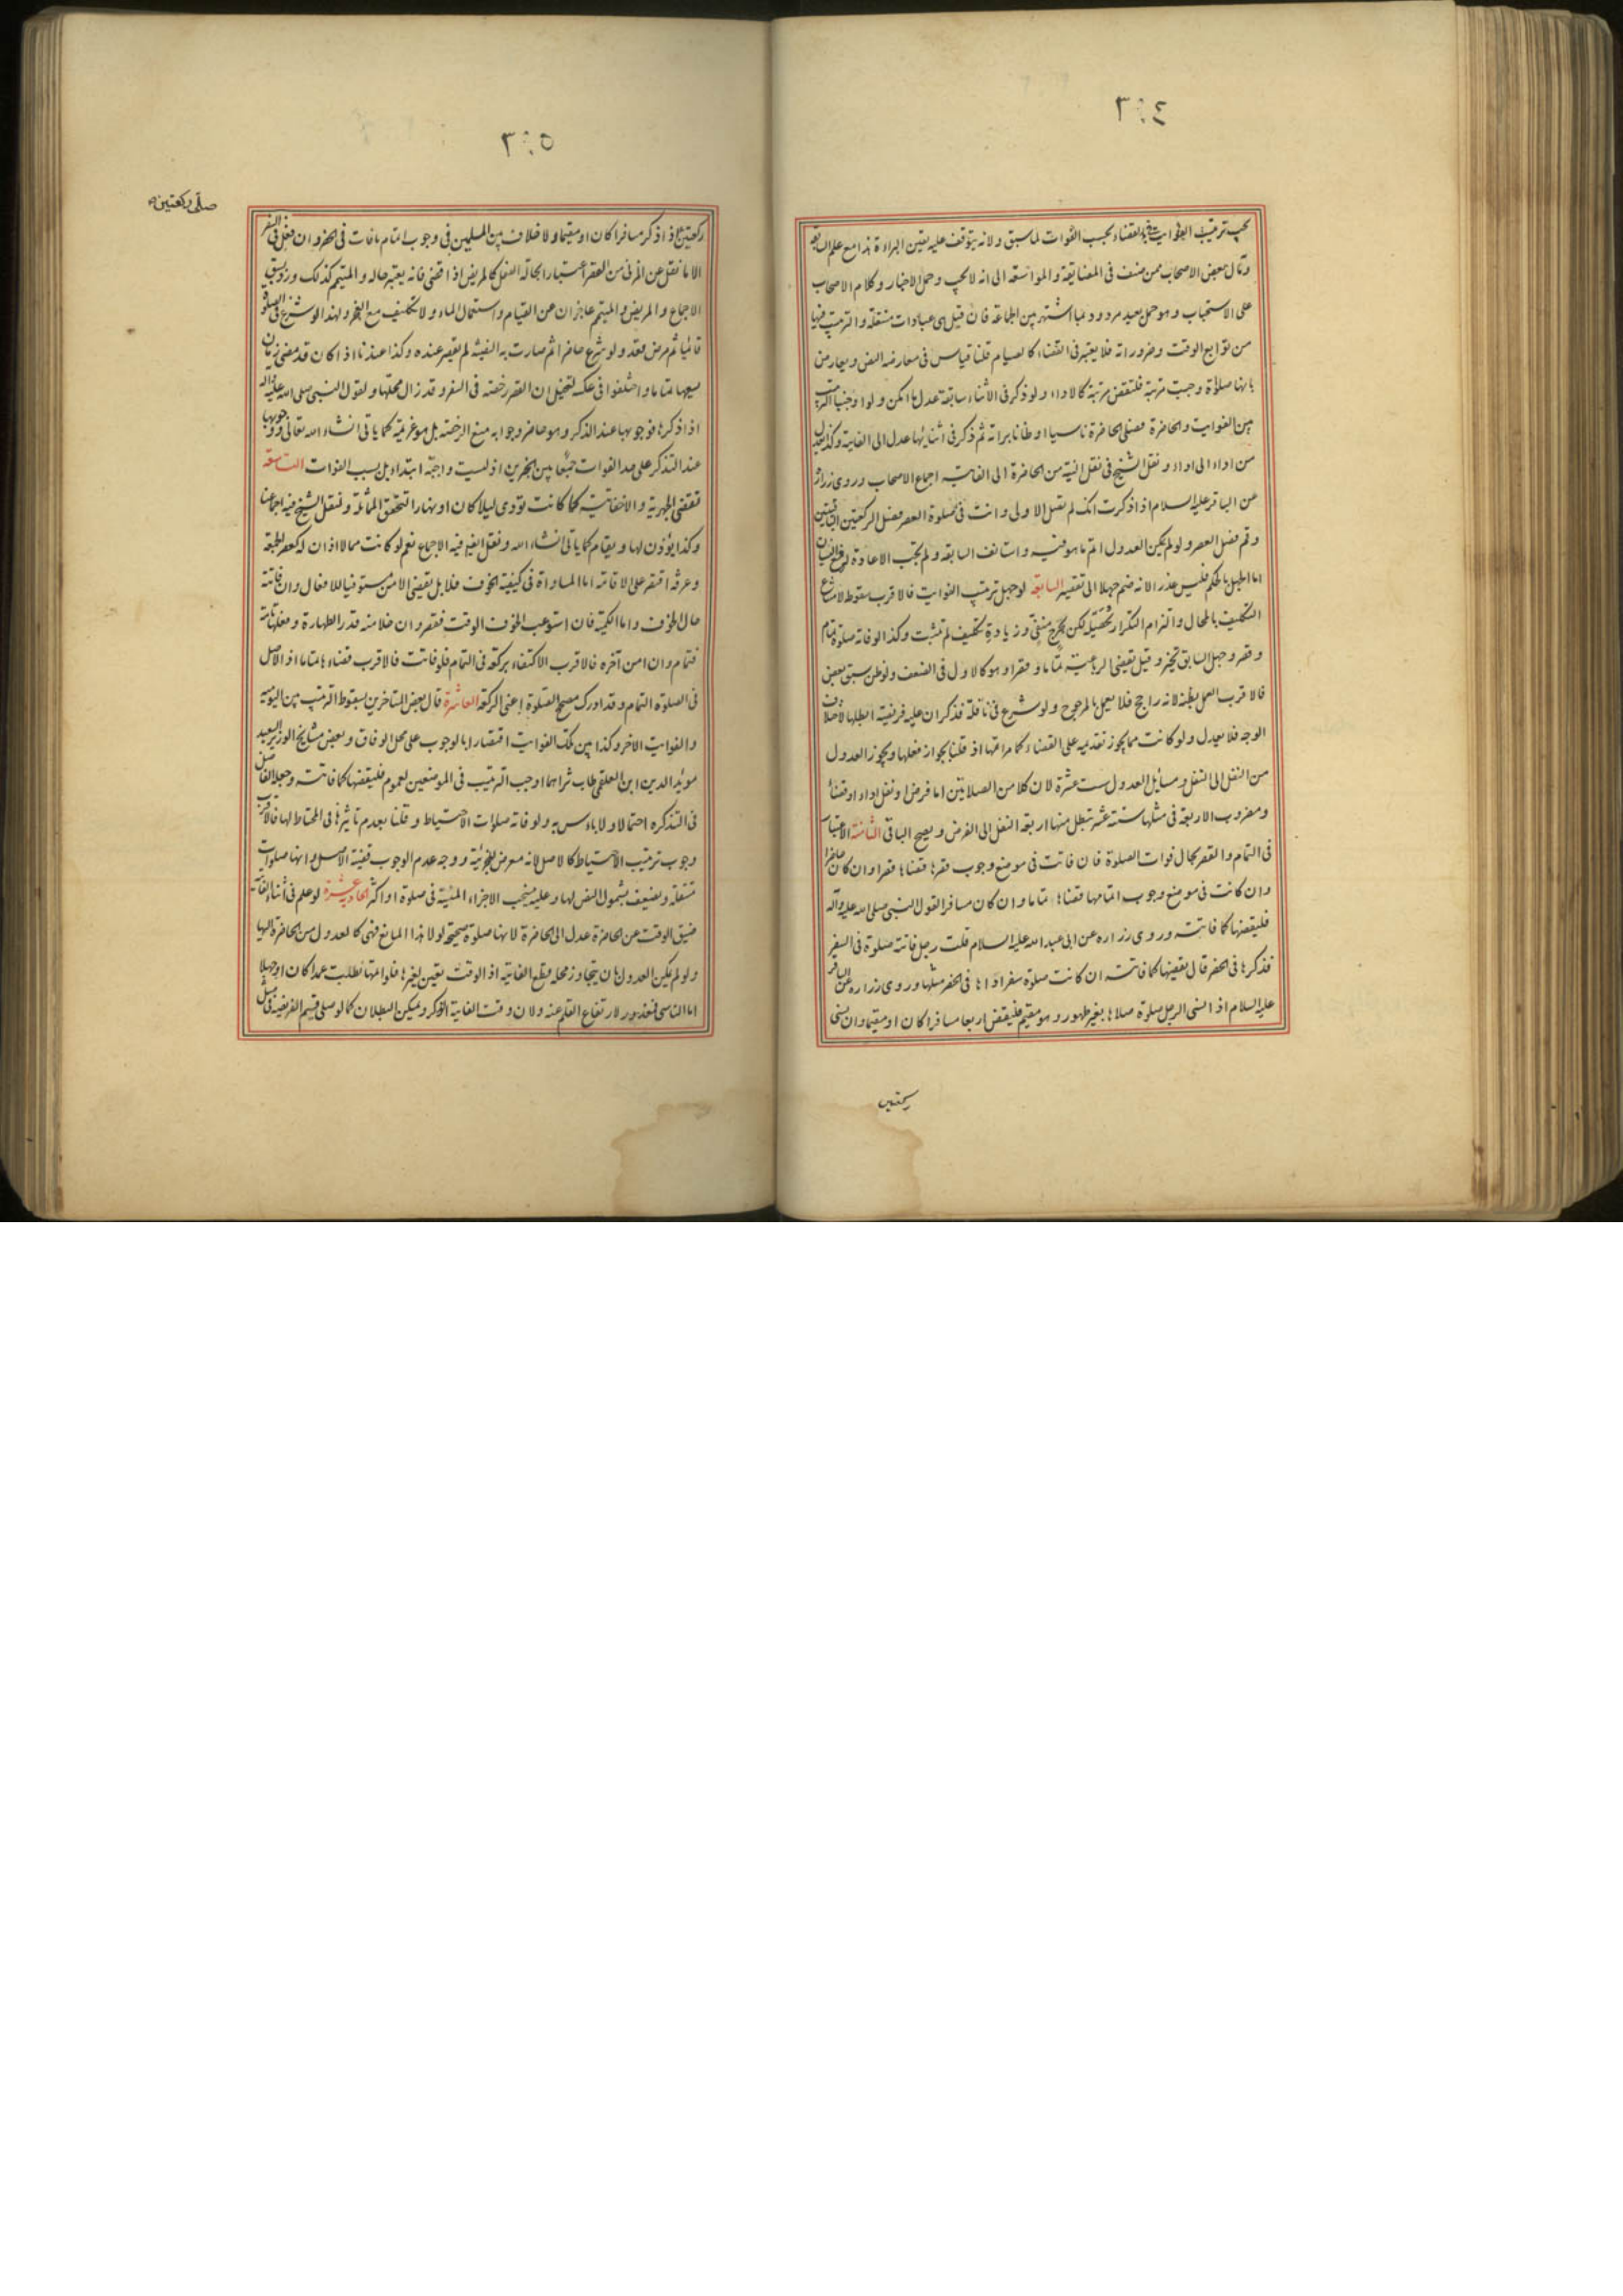 ٣٠٤
يجب ترتيب الفوايت في القضاء بحسب الفوات لما سبق ولانه يتوقف عليه يقين البراءة هذا مع علم السابقة
وقال بعض الاصحاب ممن صنف في المضايقة والمواسعة الى انه لا يجب وحمل الاخبار وكلام الاصحاب
على الاستحباب وهو حمل بعيد مردود بما اشتهر بين الجماعة فان قيل هى عبادات مستقلة والترتيب فيها
من توابع الوقت وضروراته فلا يعتبر في القضاء كالصيام قلنا قياس في معارضة النص ويعارض
بانها صلوة وجبت مرتبة فلتقض مرتبة كالاداء ولو ذكر في الاثناء سابقة عدل ما امكن ولو اوجبنا الترتيب
بين الفوايت والحاضرة فصلى الحاضرة ناسيا او ظانا براته ثم ذكر في اثنائها عدل الى الفايتة وكذا يعدل
من اداء الى اداء ونقل الشيخ في نقل النية من الحاضرة الى الفايتة اجماع الاصحاب وروى زرارة
عن الباقر عليه السلام اذا ذكرت انك لم تصل الاولى وانت في صلوة العصر فصل الركعتين الباقيتين
وقم فصل العصر ولو لم يمكن العدول اتم ما هو فيه واستانف السابقة ولم يجب الاعادة لوضع النسيان
اما الجهل بالحكم فليس عذرا لانه ضم جهلا الى تقصير السابعة لو جهل ترتيب الفوايت فالاقرب سقوطه لامتناع
التكليف بالمحال والتزام التكرار تحصيله ممكن لكن الحرج منفي وزيادة تكليف لم تثبت وكذا لو فاته صلوة تمام
وقصر وجهل السابق تخير وقيل يقضي الرباعية تماما وقصرا وهو كالاول في الضعف ولو ظن سبق بعض
فالاقرب العمل بظنه لانه راجح فلا يعمل بالمرجوح ولو شرع في نافلة فذكر ان عليه فريضة ابطلها لاختلاف
الوجه فلا يعدل ولو كانت مما يجوز تقديمه على القضاء كما مر اتمها اذ قلنا بجواز فعلها ويجوز العدول
من النفل الى النفل ومسائل العدول ست عشرة لان كلا من الصلاتين اما فرض او نفل اداء او قضاء
ومضروب الاربعة في مثلها ستة عشر تبطل منها اربعة النفل الى الفرض ويصح الباقي الثامنة الاعتبار
في التمام والقصر بحال فوات الصلوة فان فاتت في موضع وجوب قصرها قضاها قصرا وان كان حاضرا
وان كانت في موضع وجوب اتمامها قضاها تماما وان كان مسافرا لقول النبي صلى الله عليه واله
فليقضها كما فاتته وروى زرارة عن ابى عبد الله عليه السلام قلت رجل فاتته صلوة في السفر
فذكرها في الحضر قال يقضيها كما فاتته ان كانت صلوة سفر اداها في الحضر مثلها وروى زرارة عن الباقر
عليه السلام اذا نسى الرجل صلوة صلاها بغير طهور وهو مقيم فليقض اربعا مسافرا كان او مقيما وان نسي
ركعتين
٣٠٥
صلى ركعتين
ركعتين اذا ذكر مسافرا كان او مقيما ولا خلاف بين المسلمين في وجوب اتمام ما فات في الحضر وان فعل في السفر
الا ما نقل عن المزنى من القصر اعتبارا بحالة الفعل كالمريض اذا قضى فانه يعتبر حاله والمتيمم كذلك ورد بسبق
الاجماع والمريض والمتيمم عاجزان عن القيام واستعمال الماء ولا تكليف مع العجز ولهذا لو شرع في الصلوة
قائما ثم مرض قعد ولو شرع حاضرا ثم صارت به السفينة لم يقصر عنده وكذا عندنا اذا كان قد مضى زمان
يسعها تماما واختلفوا في عكسه لتخيل ان القصر رخصة في السفر وقد زال محلها ولقول النبي صلى الله عليه واله
اذا ذكرها فوجوبها عند الذكر وهو حاضر وجوابه منع الرخصة بل هو عزيمة كما ياتى انشاء الله تعالى ووجوبها
عند التذكر على حد الفوات جمعا بين الخبرين اذ ليست واجبة ابتداء بل بسبب الفوات التاسعة
تقضى الجهرية والاخفاتية كما كانت تؤدى ليلا كان او نهارا لتحقق المماثلة ونقل الشيخ فيه اجماعنا
وكذا يؤذن لها ويقام كما ياتى انشاء الله ونقل الشيخ فيه الاجماع نعم لو كانت مما لا اذان له كعصر الجمعة
وعرفة اقتصر على الاقامة اما المساواة في كيفية الخوف فلا بل يقضى الامن مستوفيا للافعال وان فاتته
حال الخوف واما الكمية فان استوعب الخوف الوقت فقصر وان خلا منه قدر الطهارة وفعلها تامة
فتمام وان امن آخره فالاقرب الاكتفاء بركعة في التمام فلو فاتت فالاقرب قضاءها تماما اذ الاصل
في الصلوة التمام وقد ادرك مصحح الصلوة اعنى الركعة العاشرة قال بعض المتاخرين بسقوط الترتيب بين اليومية
والفوايت الاخر وكذا بين تلك الفوايت اقتصارا بالوجوب على محل الوفاق وبعض مشايخ الوزير السعيد
مؤيد الدين ابن العلقمى طاب ثراهما اوجب الترتيب في الموضعين لعموم فليقضها كما فاتته وجعله الفاضل
في التذكره احتمالا ولا باس به ولو فاته صلوات الاحتياط وقلنا بعدم تاثيرها في المحتاط لها فالاقرب
وجوب ترتيب الاحتياط كالاصل لانه معرض للجزئية ووجه عدم الوجوب قضية الاصل وانها صلوات
مستقلة ويضعف بشمول النص لها وعليه ينسحب الاجزاء المنسية في صلوة او اكثر الحادية عشرة لو علم في اثناء الفائتة
ضيق الوقت عن الحاضرة عدل الى الحاضرة لانها صلوة صحيحة لولا هذا المانع فهى كالعدول من الحاضرة اليها
ولو لم يمكن العدول بان يتجاوز محله قطع الفايتة اذ الوقت تعين لغيرها فلو اتمها بطلت عمدا كان او جهلا
اما الناسي فمعذور لارتفاع القلم عنه ولان وقت الفايتة الذكر ويمكن البطلان كما لو صلى قسيم الفريضة في مثل